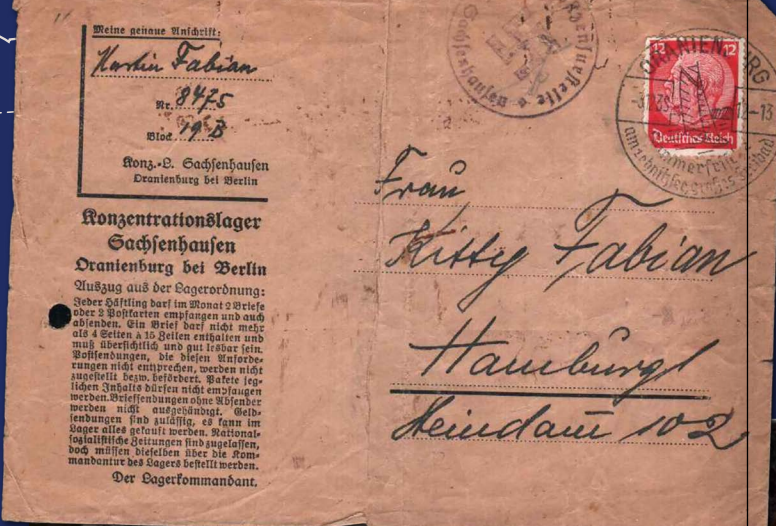 Meine genaue Anschrift:
Martin Fabian
Nr. 8475
Block 19 B
Konz.-L. Sachsenhausen
Oranienburg bei Berlin
Konzentrationslager
Sachsenhausen
Oranienburg bei Berlin
Auszug aus der Lagerordnung:
Jeder Häftling darf im Monat 2 Briefe
oder 2 Postkarten empfangen und auch
absenden. Ein Brief darf nicht mehr
als 4 Seiten à 15 Zeilen enthalten und
muß übersichtlich und gut lesbar sein.
Postsendungen, die diesen Anforde-
rungen nicht entsprechen, werden nicht
zugestellt bezw. befördert. Pakete jeg-
lichen Inhalts dürfen nicht empfangen
werden. Briefsendungen ohne Absender
werden nicht ausgehändigt. Geld-
sendungen sind zulässig, es kann im
Lager alles gekauft werden. National-
sozialistische Zeitungen sind zugelassen,
doch müssen dieselben über die Kom-
mandantur des Lagers bestellt werden.
Der Lagerkommandant.
Sachsenhausen
12 12
Deutsches Reich
ORANIENBURG
Frau
Kitty Fabian
Hamburg 1
102